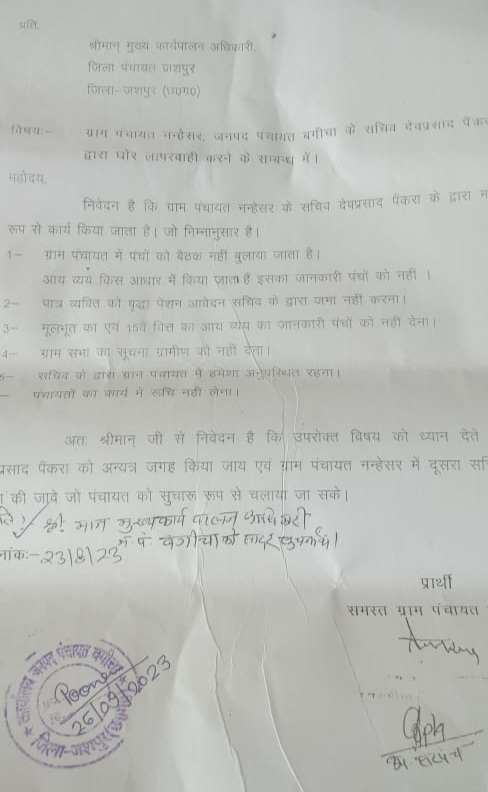 प्रति,
श्रीमान् मुख्य कार्यपालन अधिकारी,
जिला पंचायत जशपुर
जिला–जशपुर (छ०ग०)
विषयः– ग्राम पंचायत नन्हेसर, जनपद पंचायत बगीचा के सचिव देवप्रसाद पैंकरा
द्वारा घोर लापरवाही करने के सम्बन्ध में।
महोदय,
निवेदन है कि ग्राम पंचायत नन्हेसर के सचिव देवप्रसाद पैंकरा के द्वारा म
रूप से कार्य किया जाता है। जो निम्नानुसार है।
1– ग्राम पंचायत में पंचों को बैठक नहीं बुलाया जाता है।
आय व्यय किस आधार में किया जाता है इसका जानकारी पंचों को नहीं ।
2– पात्र व्यक्ति को वृद्धा पेंशन आवेदन सचिव के द्वारा जमा नहीं करना।
3– मूलभूत का एवं 15वें वित्त का आय व्यय का जानकारी पंचों को नहीं देना।
4– ग्राम सभा का सूचना ग्रामीण को नहीं देना।
5– सचिव के द्वारा ग्राम पंचायत में हमेशा अनुपस्थित रहना।
– पंचायतों का कार्य में रूचि नहीं लेना।
अतः श्रीमान् जी से निवेदन है कि उपरोक्त विषय को ध्यान देते
प्रसाद पैंकरा को अन्यत्र जगह किया जाय एवं ग्राम पंचायत नन्हेसर में दूसरा सचि
की जावे जो पंचायत को सुचारू रूप से चलाया जा सके।
श्री मान मुख्यकार्य पालन
ज पं बगीचा को सादर
नांकः– 23/8/23
प्रार्थी
समस्त ग्राम पंचायत
कार्यालय जनपद पंचायत बगीचा
26/09/2023
जिला-जशपुर